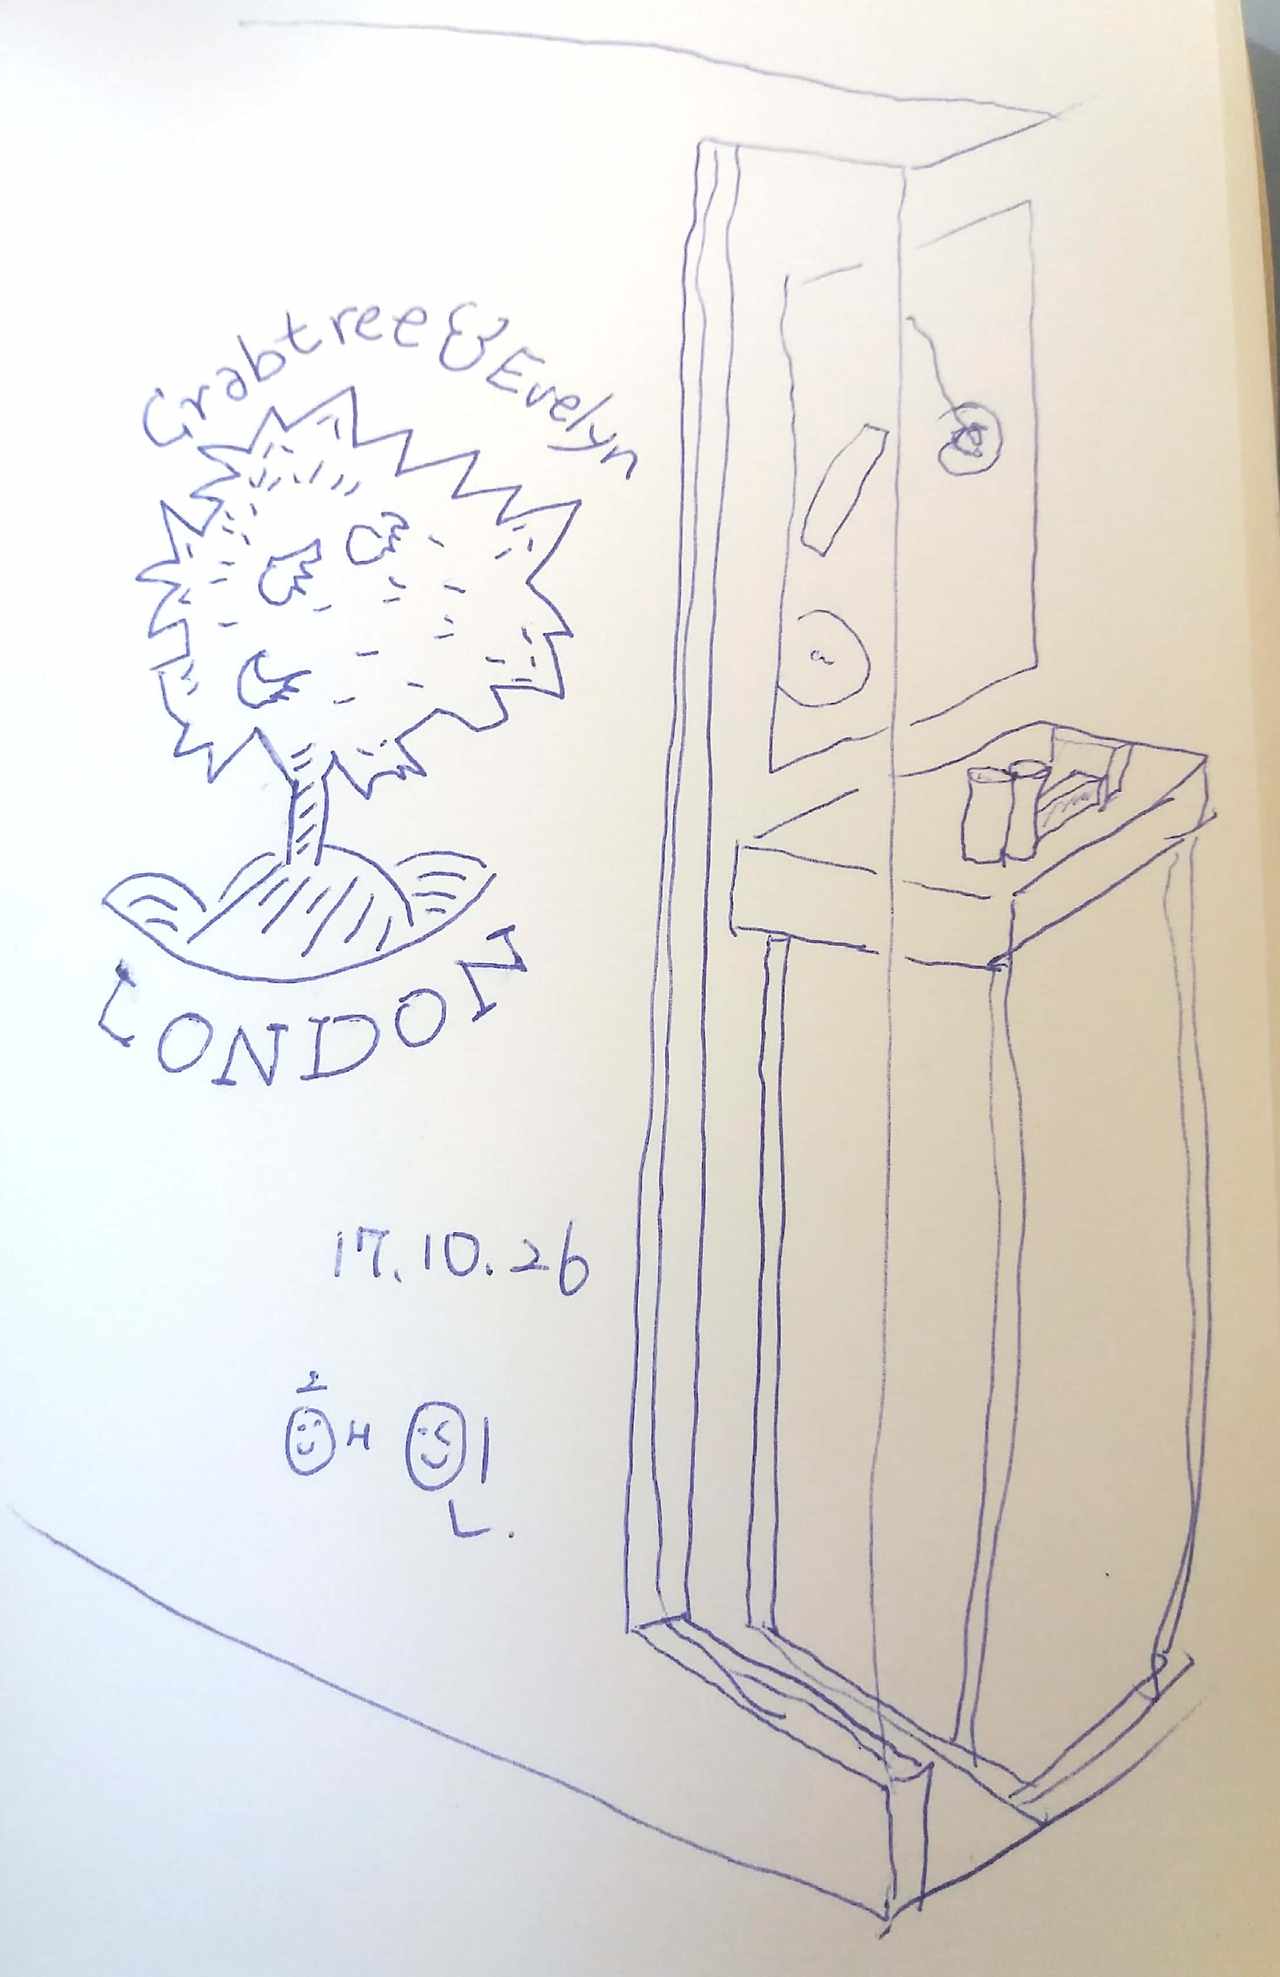 Crabtree & Evelyn
LONDON
17.10.26
해인.